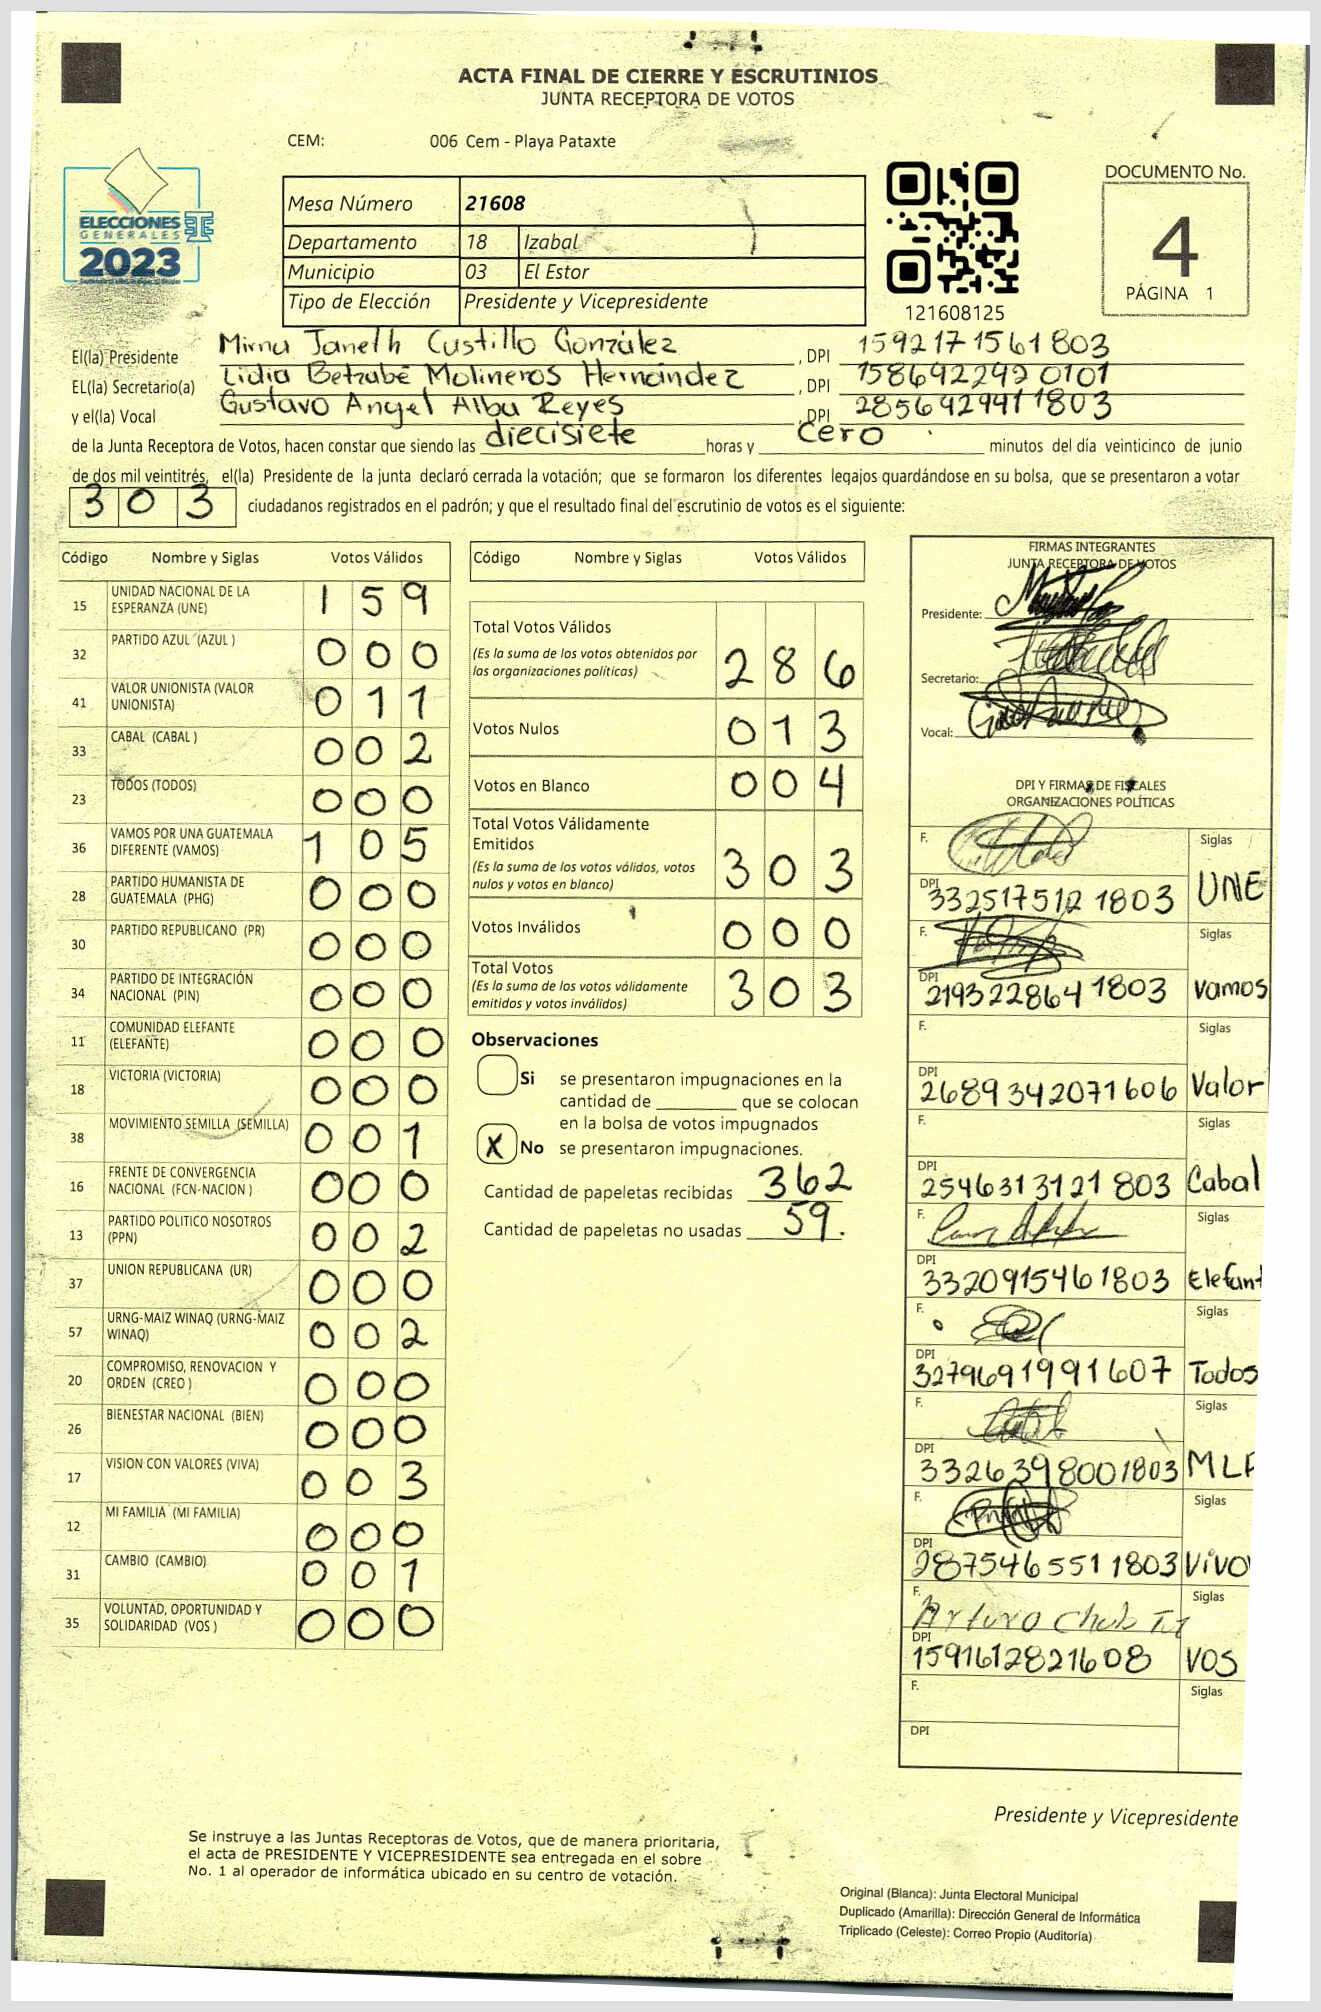 ACTA FINAL DE CIERRE Y ESCRUTINIOS
JUNTA RECEPTORA DE VOTOS
CEM: 006 Cem - Playa Pataxte
ELECCIONES
GENERALES
2023
Mesa Número 21608
Departamento 18 Izabal
Municipio 03 El Estor
Tipo de Elección Presidente y Vicepresidente
121608125
DOCUMENTO No.
4
PÁGINA 1
El(la) Presidente Mirna Janeth Custillo González, DPI 1592171561803
EL(la) Secretario(a) Lidia Betzabé Molineros Hernández, DPI 1586922920101
y el(la) Vocal Gustavo Angel Alba Reyes, DPI 2856929411803
de la Junta Receptora de Votos, hacen constar que siendo las diecisiete horas y cero minutos del día veinticinco de junio
de dos mil veintitrés, el(la) Presidente de la junta declaró cerrada la votación; que se formaron los diferentes legajos guardándose en su bolsa, que se presentaron a votar
303 ciudadanos registrados en el padrón; y que el resultado final del escrutinio de votos es el siguiente:
Código Nombre y Siglas Votos Válidos
15 UNIDAD NACIONAL DE LA ESPERANZA (UNE) 159
32 PARTIDO AZUL (AZUL ) 000
41 VALOR UNIONISTA (VALOR UNIONISTA) 011
33 CABAL (CABAL ) 002
23 TODOS (TODOS) 000
36 VAMOS POR UNA GUATEMALA DIFERENTE (VAMOS) 105
28 PARTIDO HUMANISTA DE GUATEMALA (PHG) 000
30 PARTIDO REPUBLICANO (PR) 000
34 PARTIDO DE INTEGRACIÓN NACIONAL (PIN) 000
11 COMUNIDAD ELEFANTE (ELEFANTE) 000
18 VICTORIA (VICTORIA) 000
38 MOVIMIENTO SEMILLA (SEMILLA) 001
16 FRENTE DE CONVERGENCIA NACIONAL (FCN-NACION ) 000
13 PARTIDO POLITICO NOSOTROS (PPN) 002
37 UNION REPUBLICANA (UR) 000
57 URNG-MAIZ WINAQ (URNG-MAIZ WINAQ) 002
20 COMPROMISO, RENOVACION Y ORDEN (CREO ) 000
26 BIENESTAR NACIONAL (BIEN) 000
17 VISION CON VALORES (VIVA) 003
12 MI FAMILIA (MI FAMILIA) 000
31 CAMBIO (CAMBIO) 001
35 VOLUNTAD, OPORTUNIDAD Y SOLIDARIDAD (VOS ) 000
Código Nombre y Siglas Votos Válidos
Total Votos Válidos
(Es la suma de los votos obtenidos por las organizaciones políticas) 286
Votos Nulos 013
Votos en Blanco 004
Total Votos Válidamente Emitidos
(Es la suma de los votos válidos, votos nulos y votos en blanco) 303
Votos Inválidos 000
Total Votos
(Es la suma de los votos válidamente emitidos y votos inválidos) 303
Observaciones
Si se presentaron impugnaciones en la
cantidad de ________ que se colocan
en la bolsa de votos impugnados
X No se presentaron impugnaciones.
Cantidad de papeletas recibidas 362
Cantidad de papeletas no usadas 59.
FIRMAS INTEGRANTES
JUNTA RECEPTORA DE VOTOS
Presidente:
Secretario:
Vocal:
DPI Y FIRMAS DE FISCALES
ORGANIZACIONES POLÍTICAS
F. Siglas
DPI 3325175121803 UNE
F. Siglas
DPI 2193228641803 Vamos
F. Siglas
DPI 2689342071606 Valor
F. Siglas
DPI 2546313121803 Cabal
F. Siglas
DPI 3320915461803 Elefant
F. Siglas
DPI 3279691991607 Todos
F. Siglas
DPI 3326398001803 MLP
F. Siglas
DPI 2875465511803 Vivo
F. Arturo Chub Siglas
DPI 1591612821608 VOS
F. Siglas
DPI
Presidente y Vicepresidente
Se instruye a las Juntas Receptoras de Votos, que de manera prioritaria,
el acta de PRESIDENTE Y VICEPRESIDENTE sea entregada en el sobre
No. 1 al operador de informática ubicado en su centro de votación.
Original (Blanca): Junta Electoral Municipal
Duplicado (Amarilla): Dirección General de Informática
Triplicado (Celeste): Correo Propio (Auditoría)